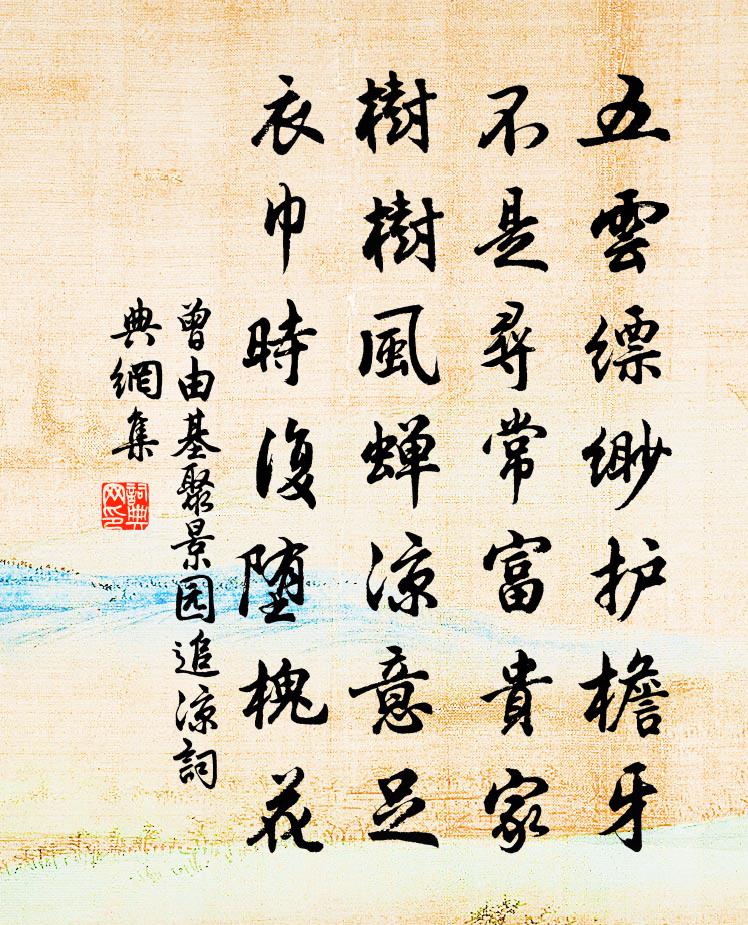 五雲缥緲护檐牙
不是尋常富貴家
樹樹風蝉涼意足
衣巾時復堕槐花
曾由基聚景园追涼詞
典網集
詞典
网印